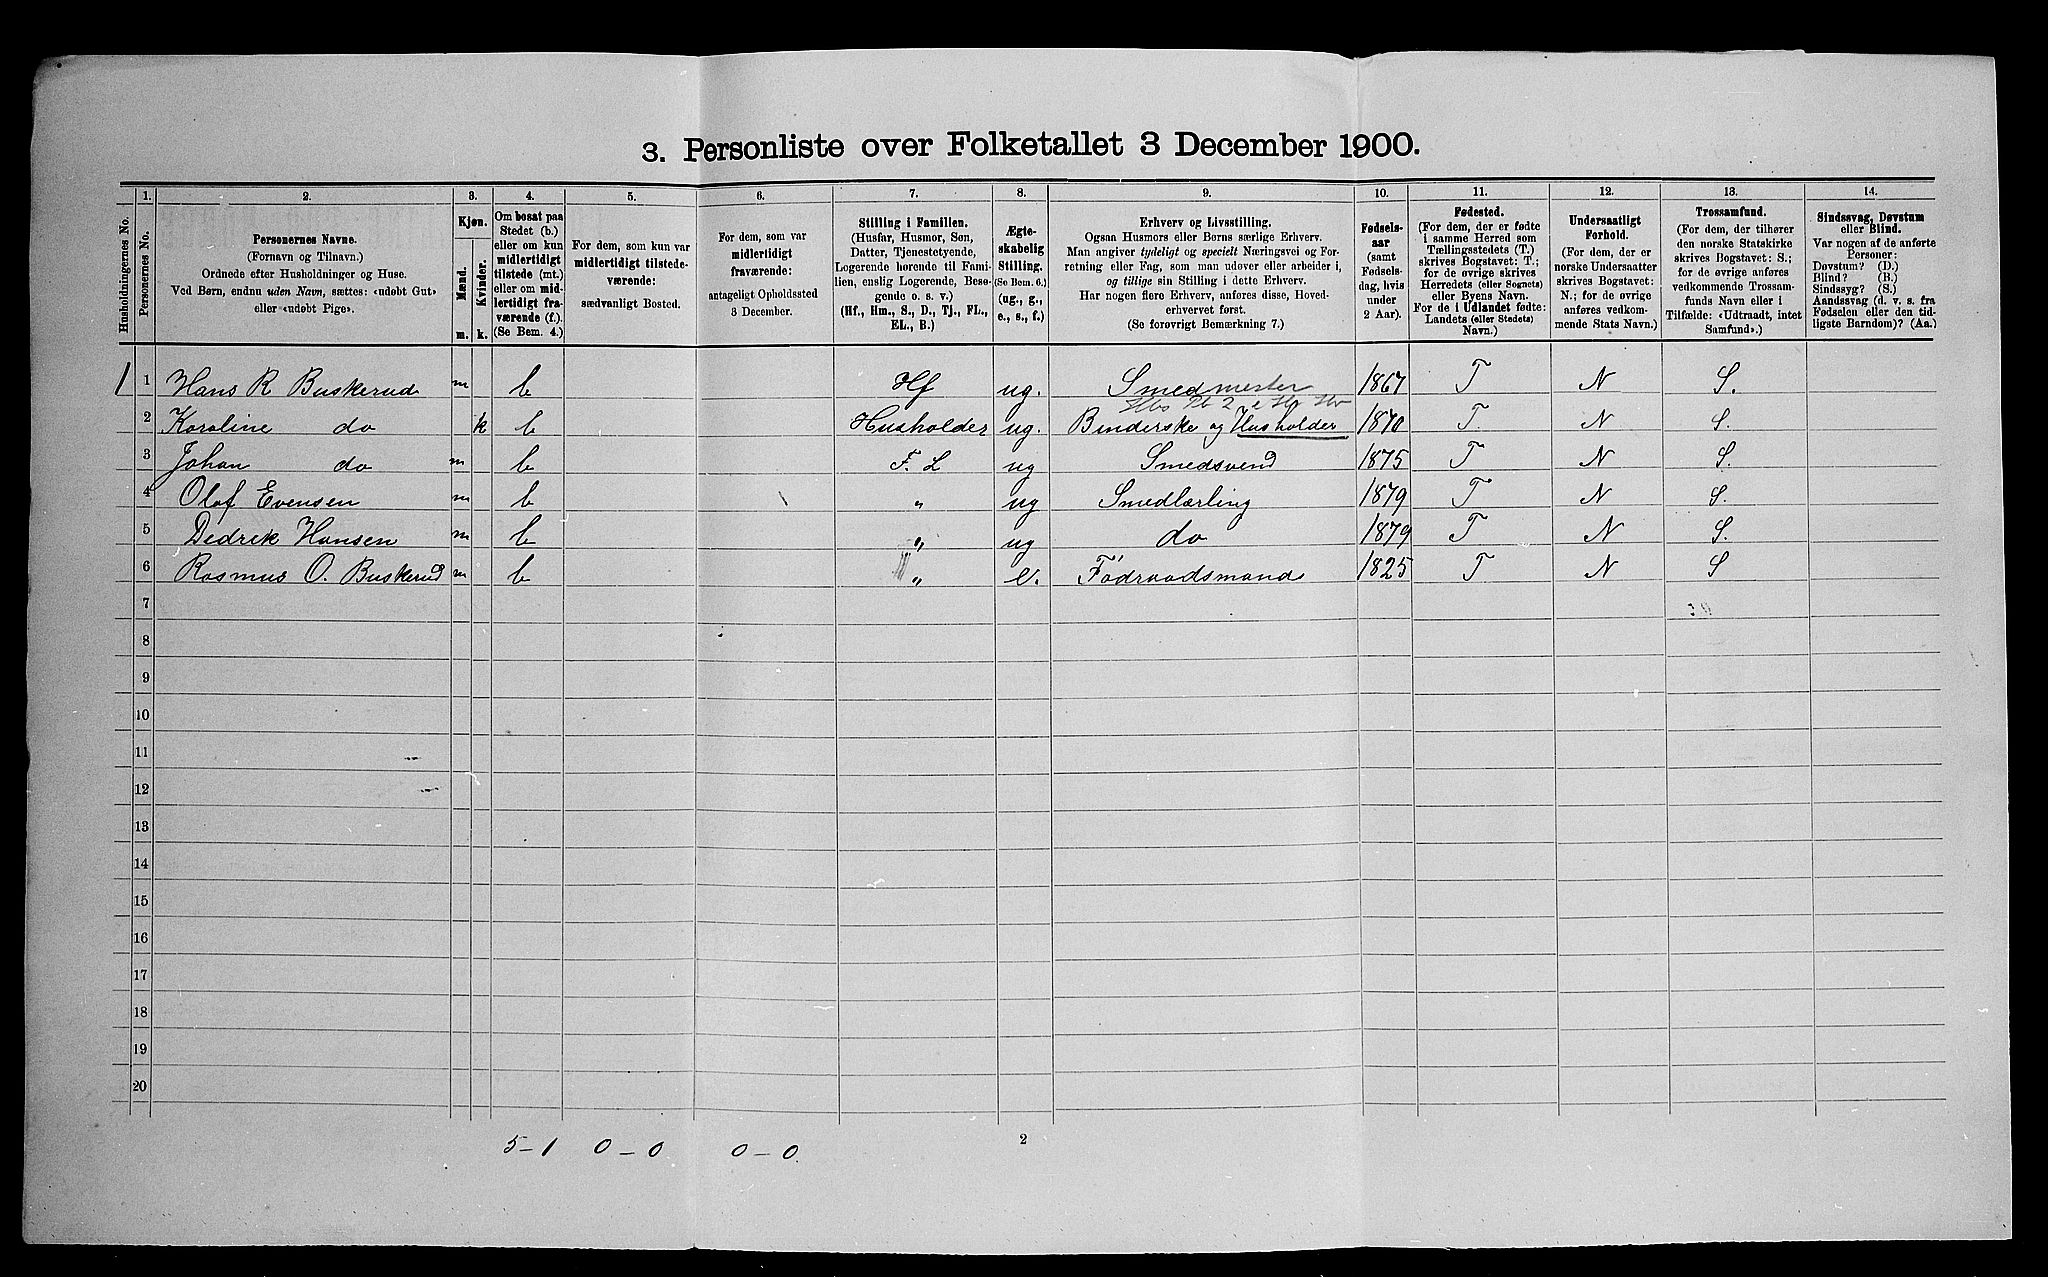 3. Personliste over Folketallet 3 December 1900.
Husholdningernes No.
1. Personernes No.
2. Personernes Navne.
(Fornavn og Tilnavn.)
Ordnede efter Husholdninger og Huse.
Ved Børn, endnu uden Navn, sættes: «udøbt Gut»
eller «udøbt Pige».
3. Kjøn.
Mænd. m.
Kvinder. k.
4. Om bosat paa
Stedet (b.)
eller om kun
midlertidigt
tilstede (mt.)
eller om mid-
lertidigt fra-
værende (f.).
(Se Bem. 4.)
5. For dem, som kun var
midlertidigt tilstede-
værende:
sædvanligt Bosted.
6. For dem, som var
midlertidigt
fraværende:
antageligt Opholdssted
3 December.
7. Stilling i Familien.
(Husfar, Husmor, Søn,
Datter, Tjenestetyende,
Logerende hørende til Fami-
lien, enslig Logerende, Besø-
gende o. s. v.)
(Hf., Hm., S., D., Tj., FL.,
EL., B.)
8. Ægte-
skabelig
Stilling.
(Se Bem. 6.)
(ug., g.,
e., s., f.)
9. Erhverv og Livsstilling.
Ogsaa Husmors eller Børns særlige Erhverv.
Man angiver tydeligt og specielt Næringsvei og For-
retning eller Fag, som man udøver eller arbeider i,
og tillige sin Stilling i dette Erhverv.
Har nogen flere Erhverv, anføres disse, Hoved-
erhvervet først.
(Se forøvrigt Bemærkning 7.)
10. Fødsels-
aar
(samt
Fødsels-
dag, hvis
under
2 Aar).
11. Fødested.
(For dem, der er fødte
i samme Herred som
Tællingsstedets (T.)
skrives Bogstavet: T.;
for de øvrige skrives
Herredets (eller Sognets)
eller Byens Navn.
For de i Udlandet fødte:
Landets (eller Stedets)
Navn.)
12. Undersaatligt
Forhold.
(For dem, der er
norske Undersaatter
skrives Bogstavet:
N.; for de øvrige
anføres vedkom-
mende Stats Navn.)
13. Trossamfund.
(For dem, der tilhører
den norske Statskirke
skrives Bogstavet: S.;
for de øvrige anføres
vedkommende Trossam-
funds Navn eller i
Tilfælde: «Udtraadt, intet
Samfund».)
14. Sindssvag, Døvstum
eller Blind.
Var nogen af de anførte
Personer:
Døvstum? (D.)
Blind? (B.)
Sindssyg? (S.)
Aandssvag (d. v. s. fra
Fødselen eller den tid-
ligste Barndom)? (Aa.)
1 1 Hans R Buskerud m b Hf ug. Smedmester 1867 T N S.
2 Karoline do k b Husholder ug. Binderske og Husholder 1870 T. N S.
3 Johan do m b F. L ug Smedsvend 1875 T N S.
4 Olaf Evensen m b " ug Smedlærling 1879 T N S.
5 Dedrik Hansen m b " ug do 1879 T N S.
6 Rasmus O. Buskerud m b " e. Födraadsmand 1825 T N S
7
8
9
10
11
12
13
14
15
16
17
18
19
20
5-1 0-0 0-0. 2